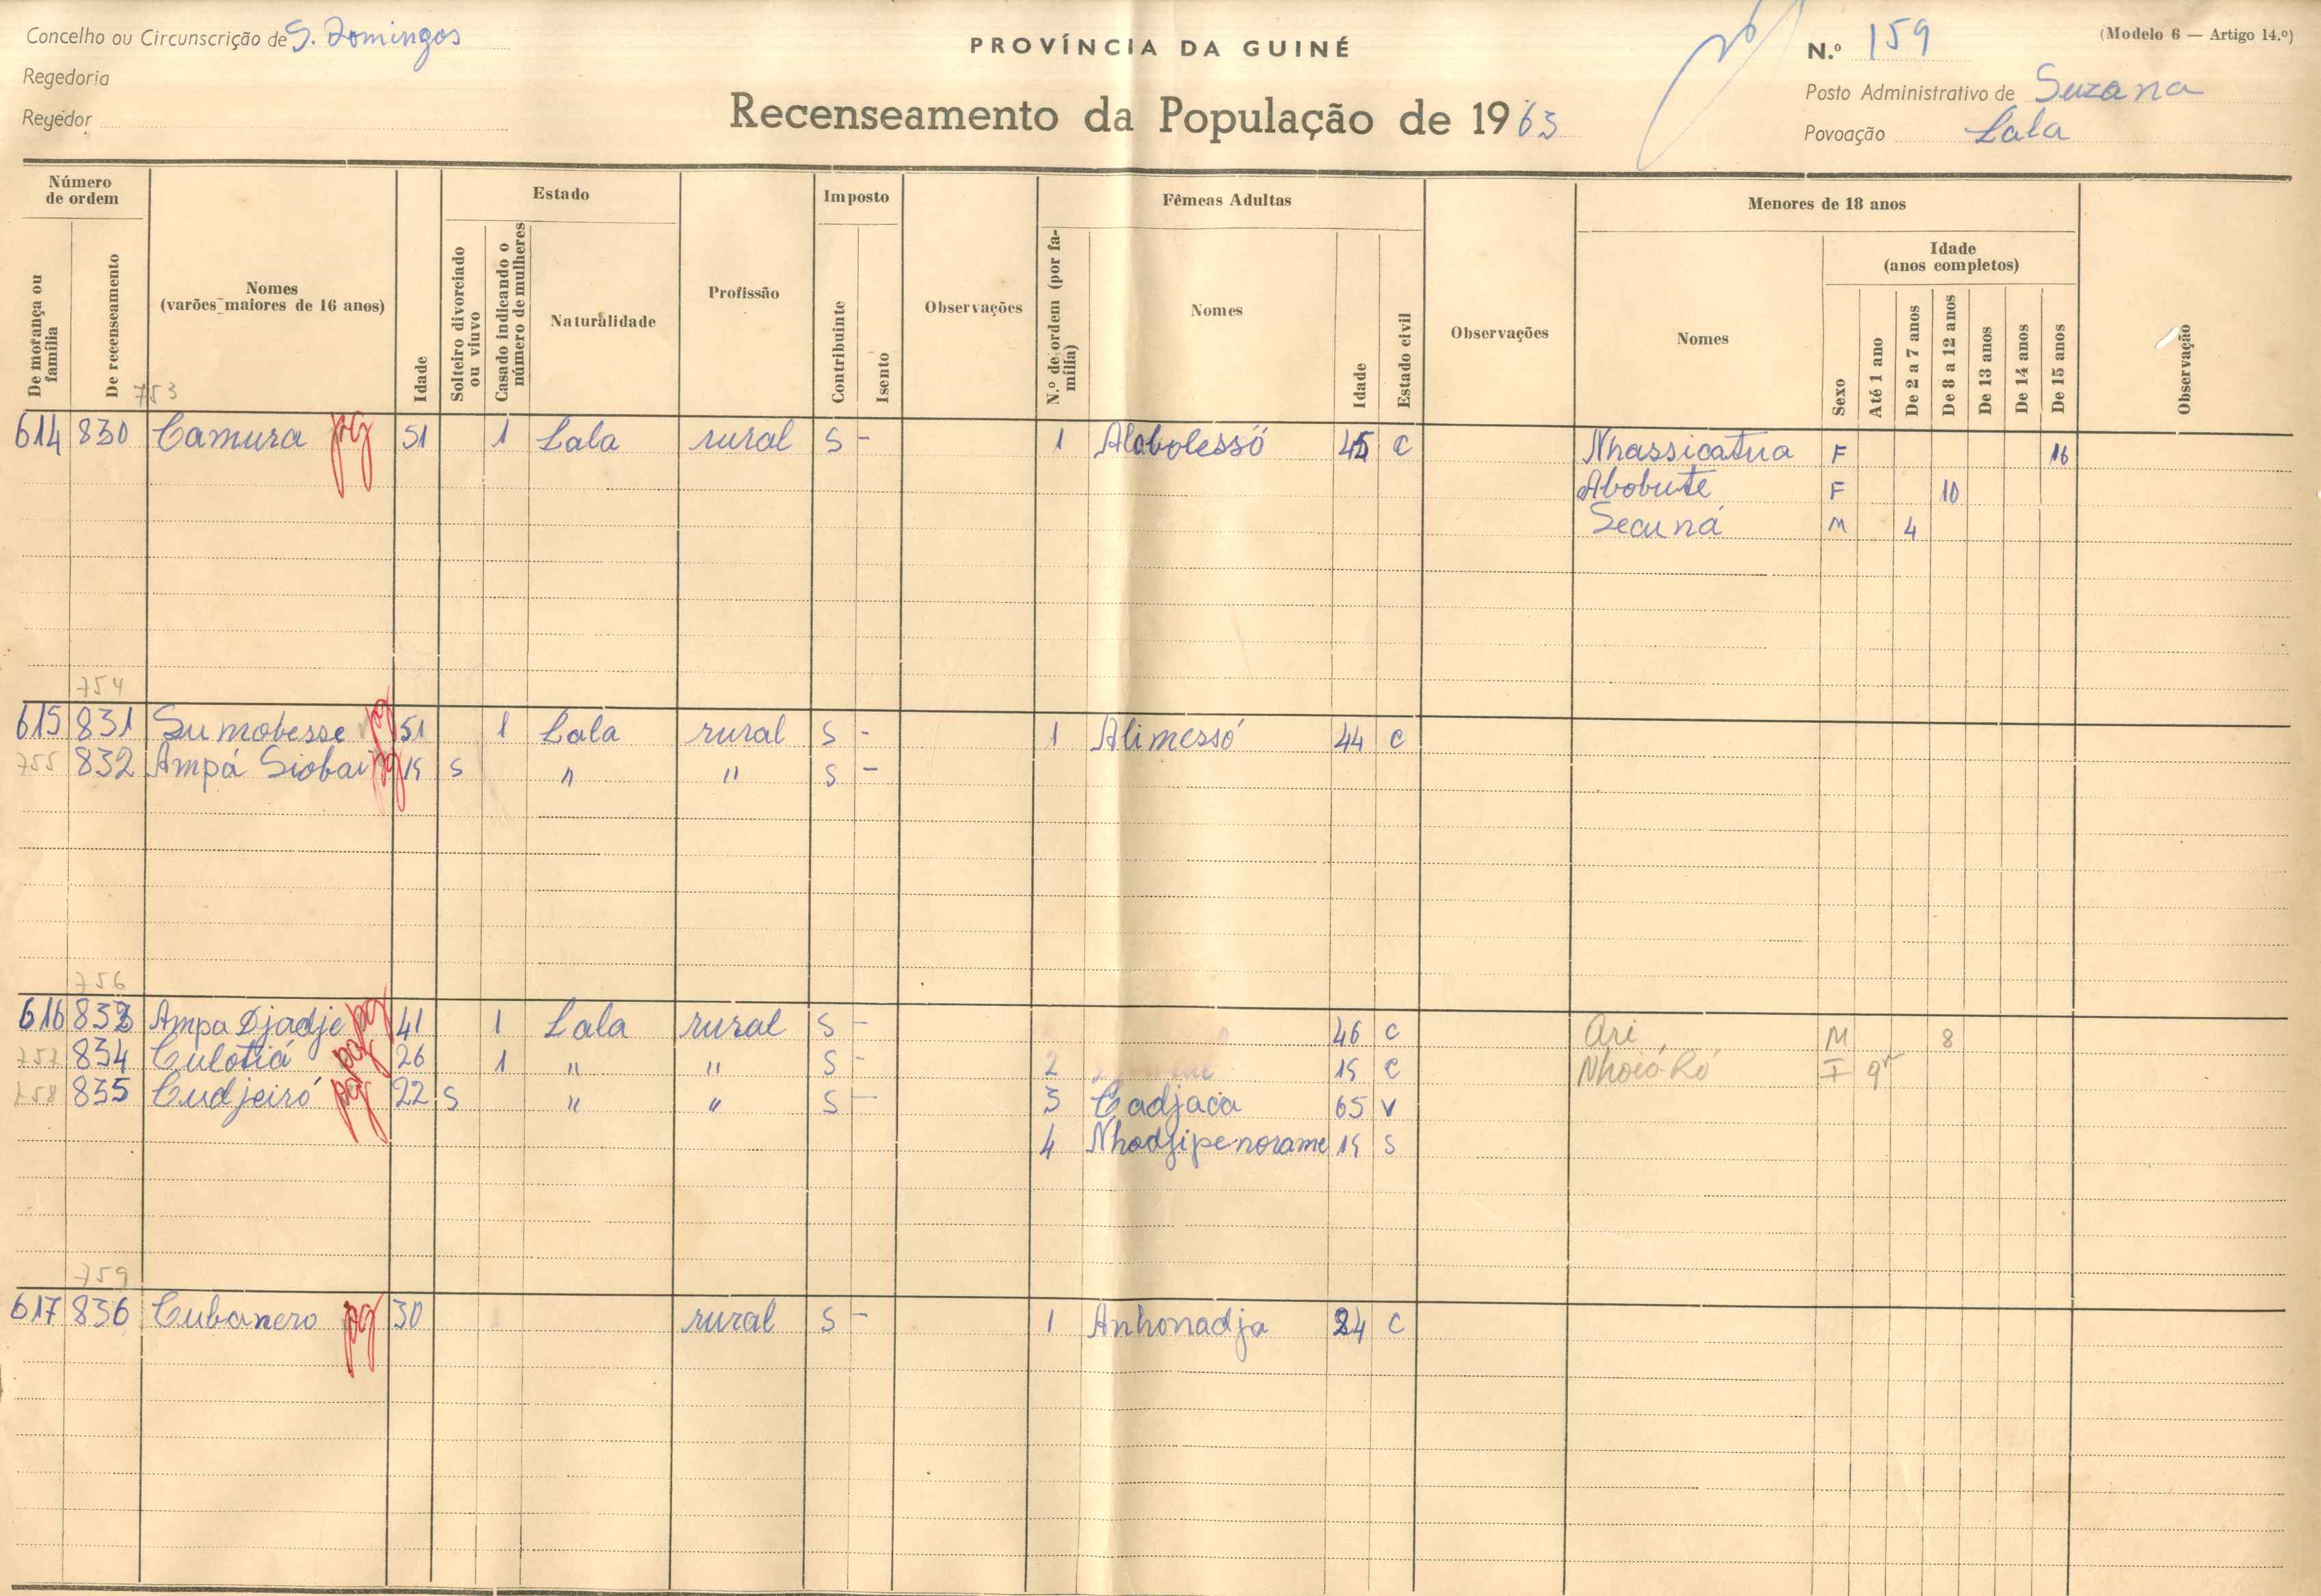 Concelho ou Circunscrição de S. Domingos
PROVÍNCIA DA GUINÉ
N.º 159
(Modelo 6 — Artigo 14.º)
Regedoria
Posto Administrativo de Suzana
Regedor
Recenseamento da População de 1963
Povoação Lala
Número de ordem
De morança ou família
De recenseamento
Nomes (varões maiores de 16 anos)
Idade
Estado
Solteiro divorciado ou viuvo
Casado indicando o número de mulheres
Naturalidade
Profissão
Imposto
Contribuinte
Isento
Observações
Fêmeas Adultas
N.º de ordem (por família)
Nomes
Idade
Estado civil
Observações
Menores de 18 anos
Nomes
Sexo
Idade (anos completos)
Até 1 ano
De 2 a 7 anos
De 8 a 12 anos
De 13 anos
De 14 anos
De 15 anos
Observação
753
614 830 Camura pg 51 1 Lala rural S - 1 Alabolessó 45 C Nhassicatua F 16
Abobute F 10
Secuná M 4
754
615 831 Sumobesse pg 51 1 Lala rural S - 1 Alimessó 44 C
755 832 Ampá Siobai pg 19 S " " S -
756
616 833 Ampa Djadje pg 41 1 Lala rural S - 46 C Ari M 8
757 834 Culotiá pg 26 1 " " S - 2 19 C Nhoió Ró F 9m
758 835 Cudjeiró pg 22 S " " S - 3 Cadjaca 65 V
4 Nhadjipenorame 19 S
759
617 836 Cubanero pg 30 rural S - 1 Anhonadja 24 C